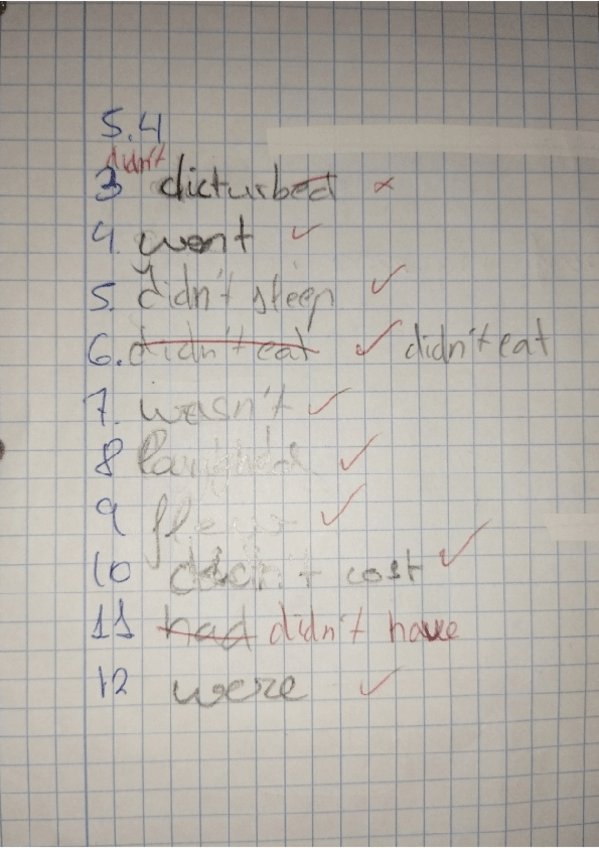 5.4
didn't
3 dicturbed ×
4. went ✓
5. didn't sleep ✓
6. didn't eat ✓ didn't eat
7. wasn't ✓
8 laughed ✓
9 flew ✓
10 didn't cost ✓
11 had didn't have
12 were ✓